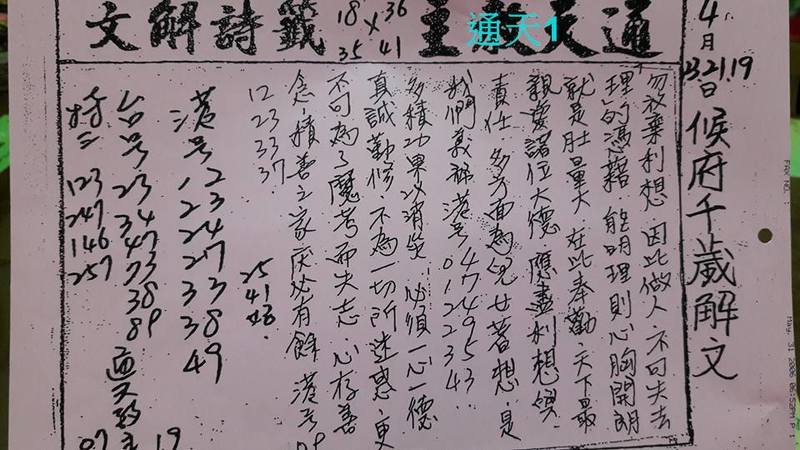 通天教主籤詩解文
通天1
18 36
×
35 41
4月13.21.19日候府千歲解文
勿放棄利想.因此做人.不可失去
理的憑藉.能明理則心胸開朗
就是肚量大.在此奉勸.天下最
親愛諸位大德.應盡利想與
責任.多方面為兒女著想.是
我們義務港号 47 49 43
多積功果以消災.必須一心一德
真誠勤修.不為一切所迷惑.更
不可為了魔考而失志.心存善
念.積善之家.慶必有餘.港号09
12 23 33 37.
25 41 46.
港号.12 23 24 27 33 38 49
台号.23 34 47 73 38 89
123 247 146 257
07 19
FAX NO. :
May. 31 2006 06:52PM P 1